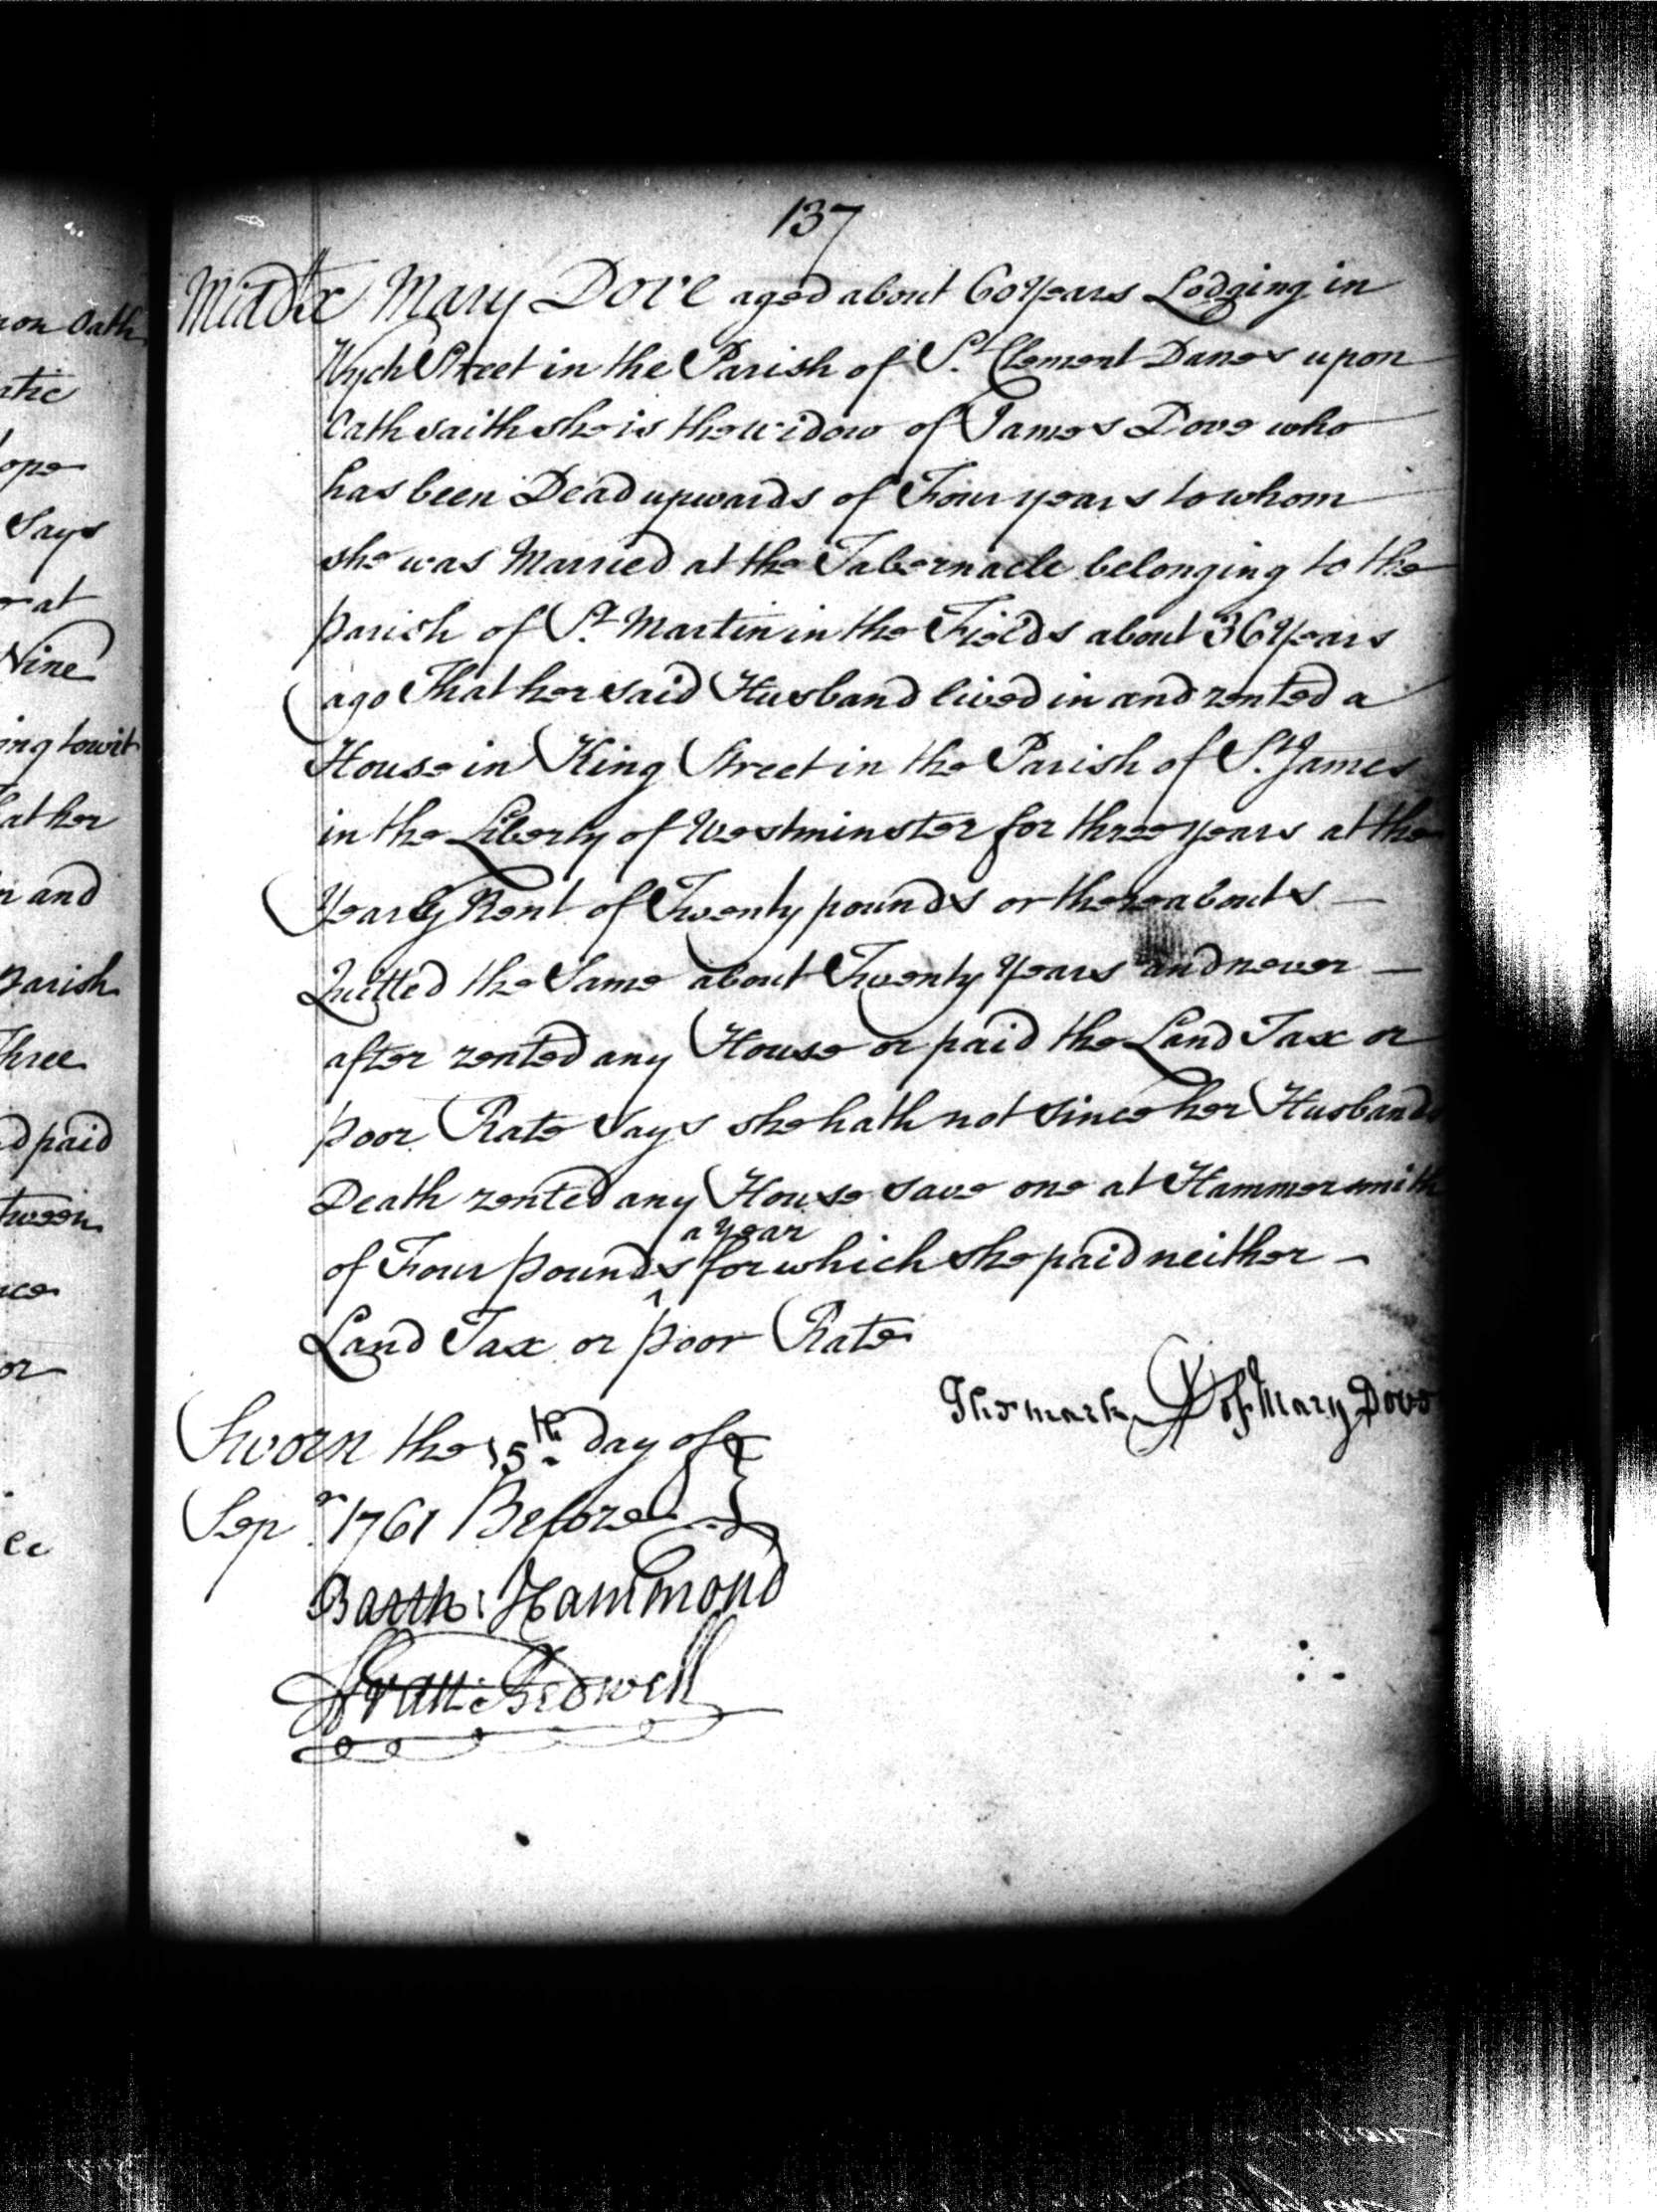 137
Middx Mary Dove aged about 60 Years Lodging in
Wych Street in the Parish of St. Clement Danes upon
Oath saith she is the widow of James Dove who
has been Dead upwards of Four years to whom
she was Married at the Tabernacle belonging to the
parish of St. Martin in the Fields about 36 Years
ago That her said Husband lived in and rented a
House in King Street in the Parish of St. James
in the Liberty of Westminster for three years at the
Yearly Rent of Twenty pounds or thereabouts —
Quitted the Same about Twenty Years and never —
after rented any House or paid the Land Tax or
poor Rate Says she hath not since her Husbands
Death rented any House save one at Hammersmith
a year
of Four pounds ^ for which she paid neither —
Land Tax or poor Rate
The mark D of Mary Dove
Sworn the 15th. day of
Sepr. 1761 Before
Barth: Hammond
Bedwell
on Oath
ope
Says
at
Nine
ing towit
at her
and
parish
Three
d paid
tween
or